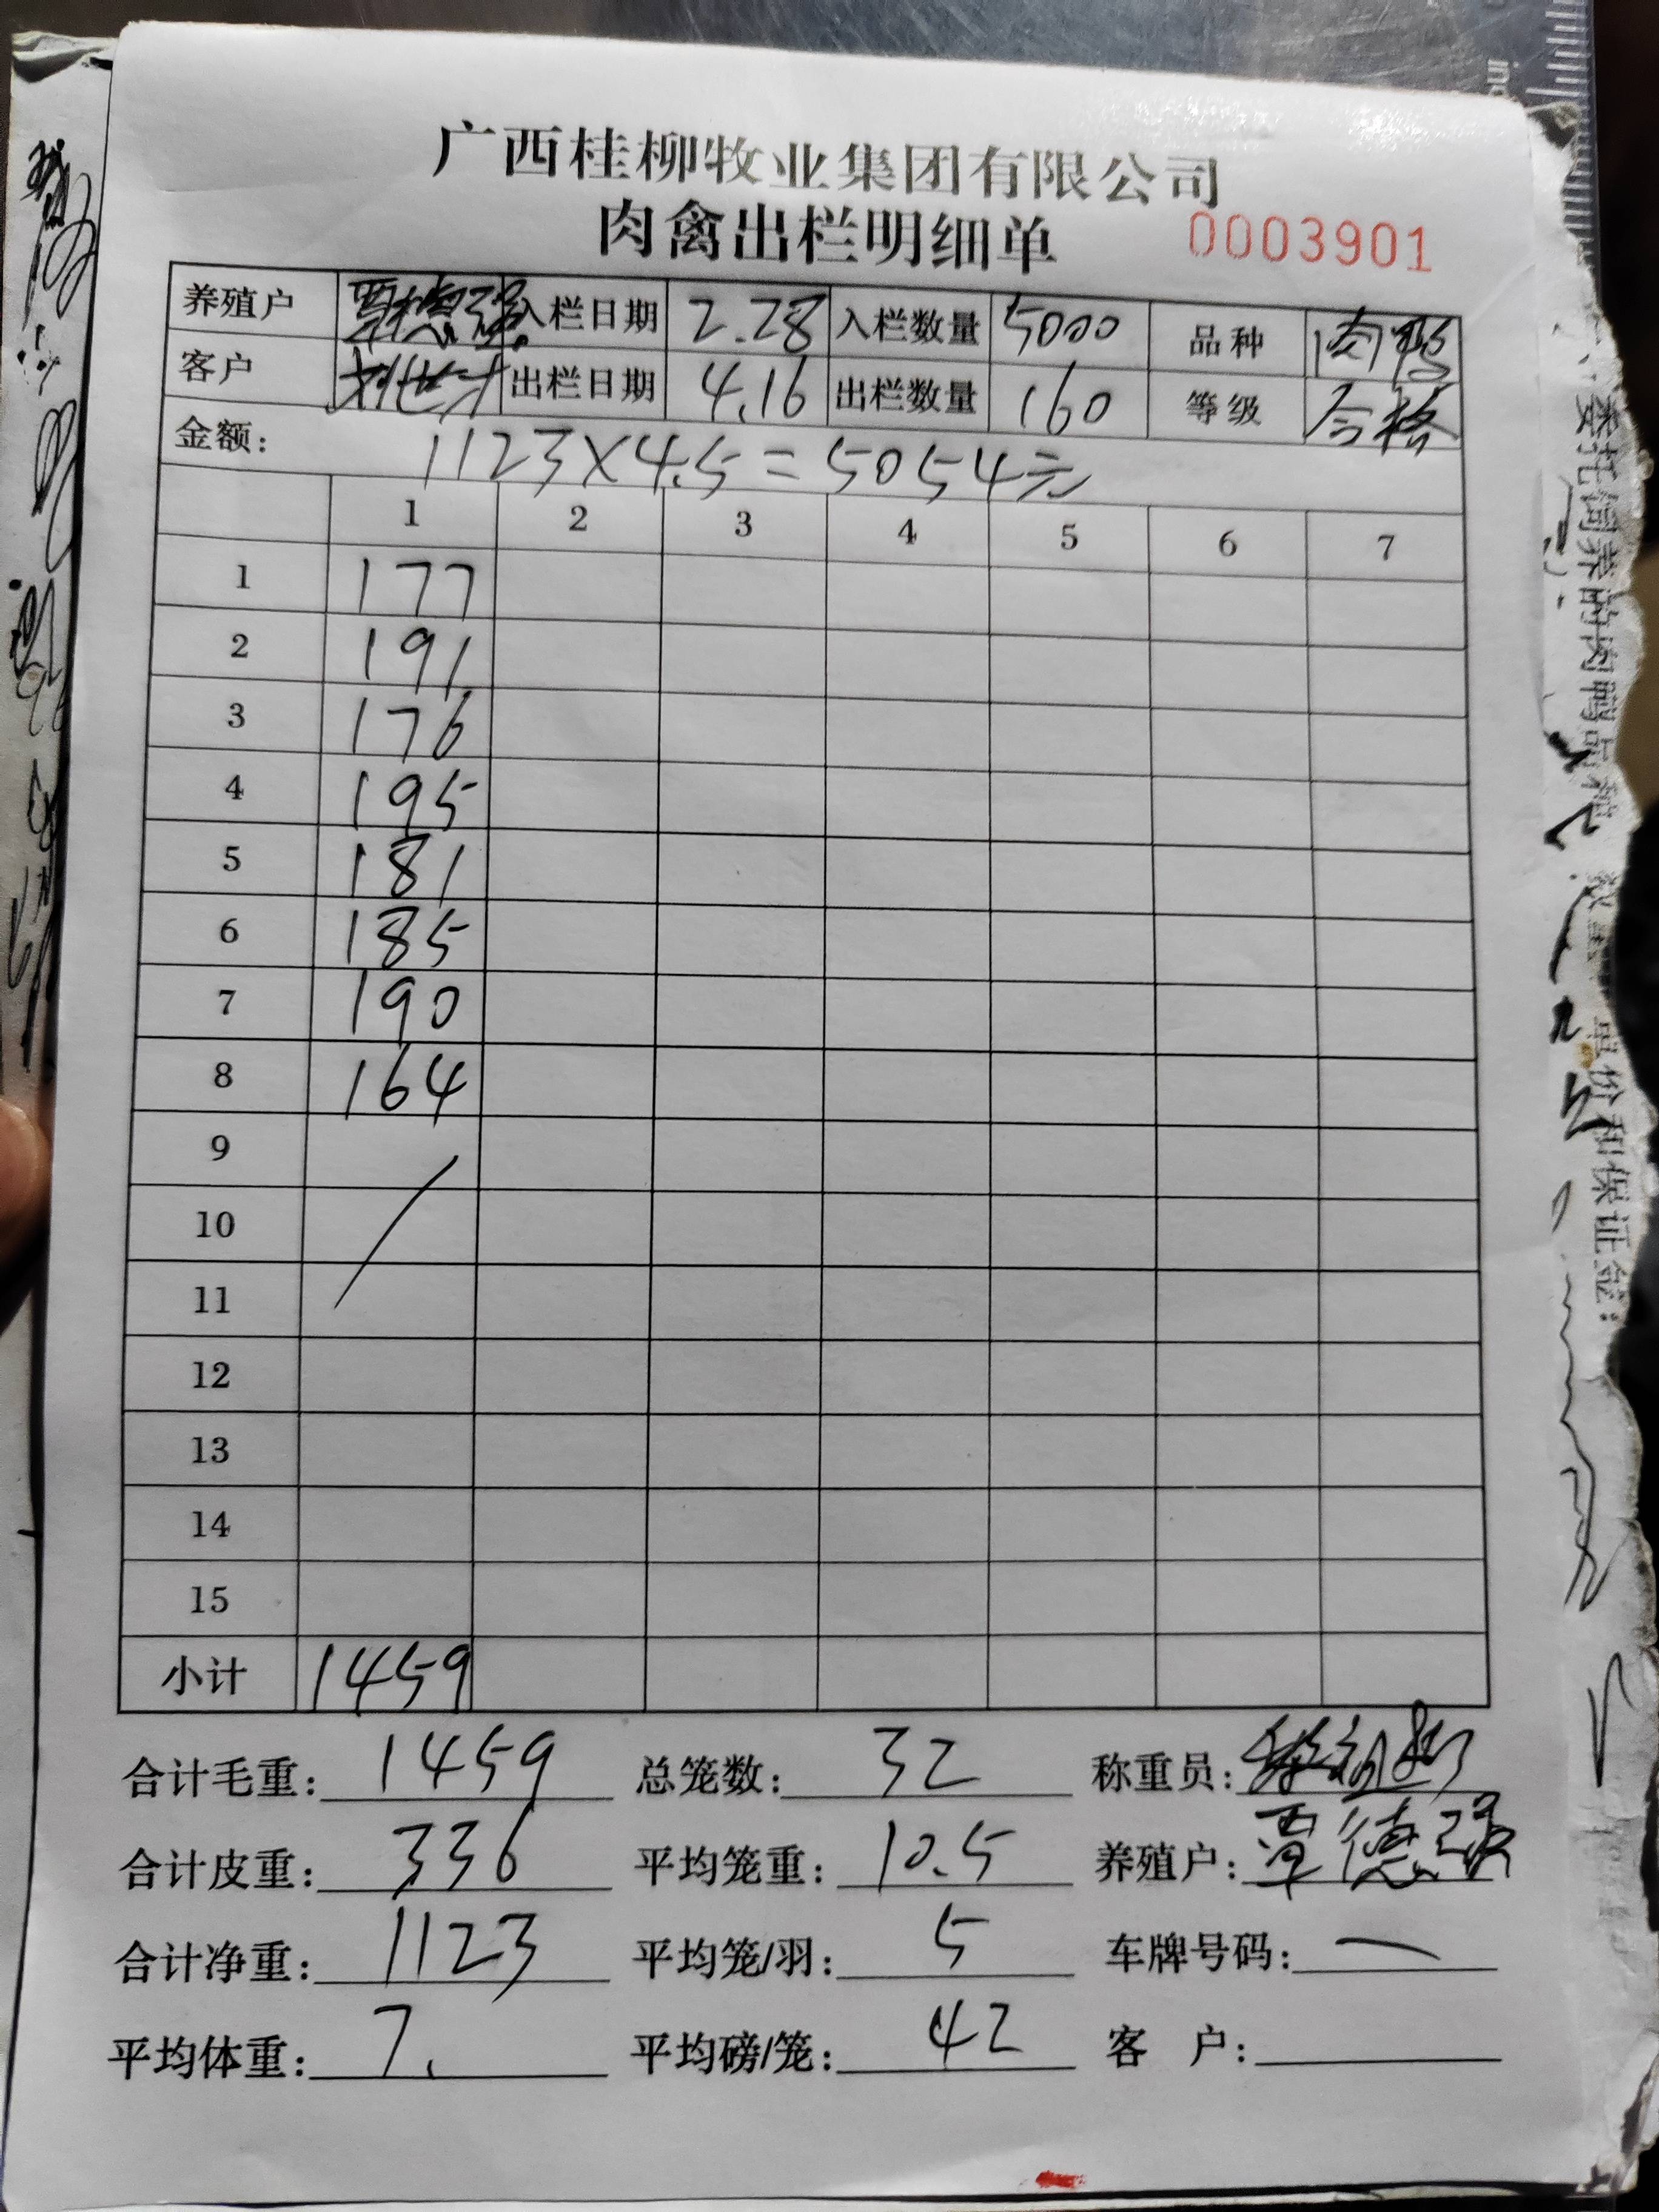 广西桂柳牧业集团有限公司
肉禽出栏明细单 0003901
养殖户 覃德强 入栏日期 2.28 入栏数量 5000 品种 肉鸭
客户 出栏日期 4.16 出栏数量 160 等级 合格
金额: 1123×4.5=5054元
1 2 3 4 5 6 7
1 177
2 191
3 176
4 195
5 181
6 185
7 190
8 164
9
10
11
12
13
14
15
小计 1459
合计毛重: 1459 总笼数: 32 称重员:
合计皮重: 336 平均笼重: 10.5 养殖户: 覃德强
合计净重: 1123 平均笼/羽: 5 车牌号码: 一
平均体重: 7. 平均磅/笼: 42 客 户:
委托饲养的肉鸭品种
单价和保证金: